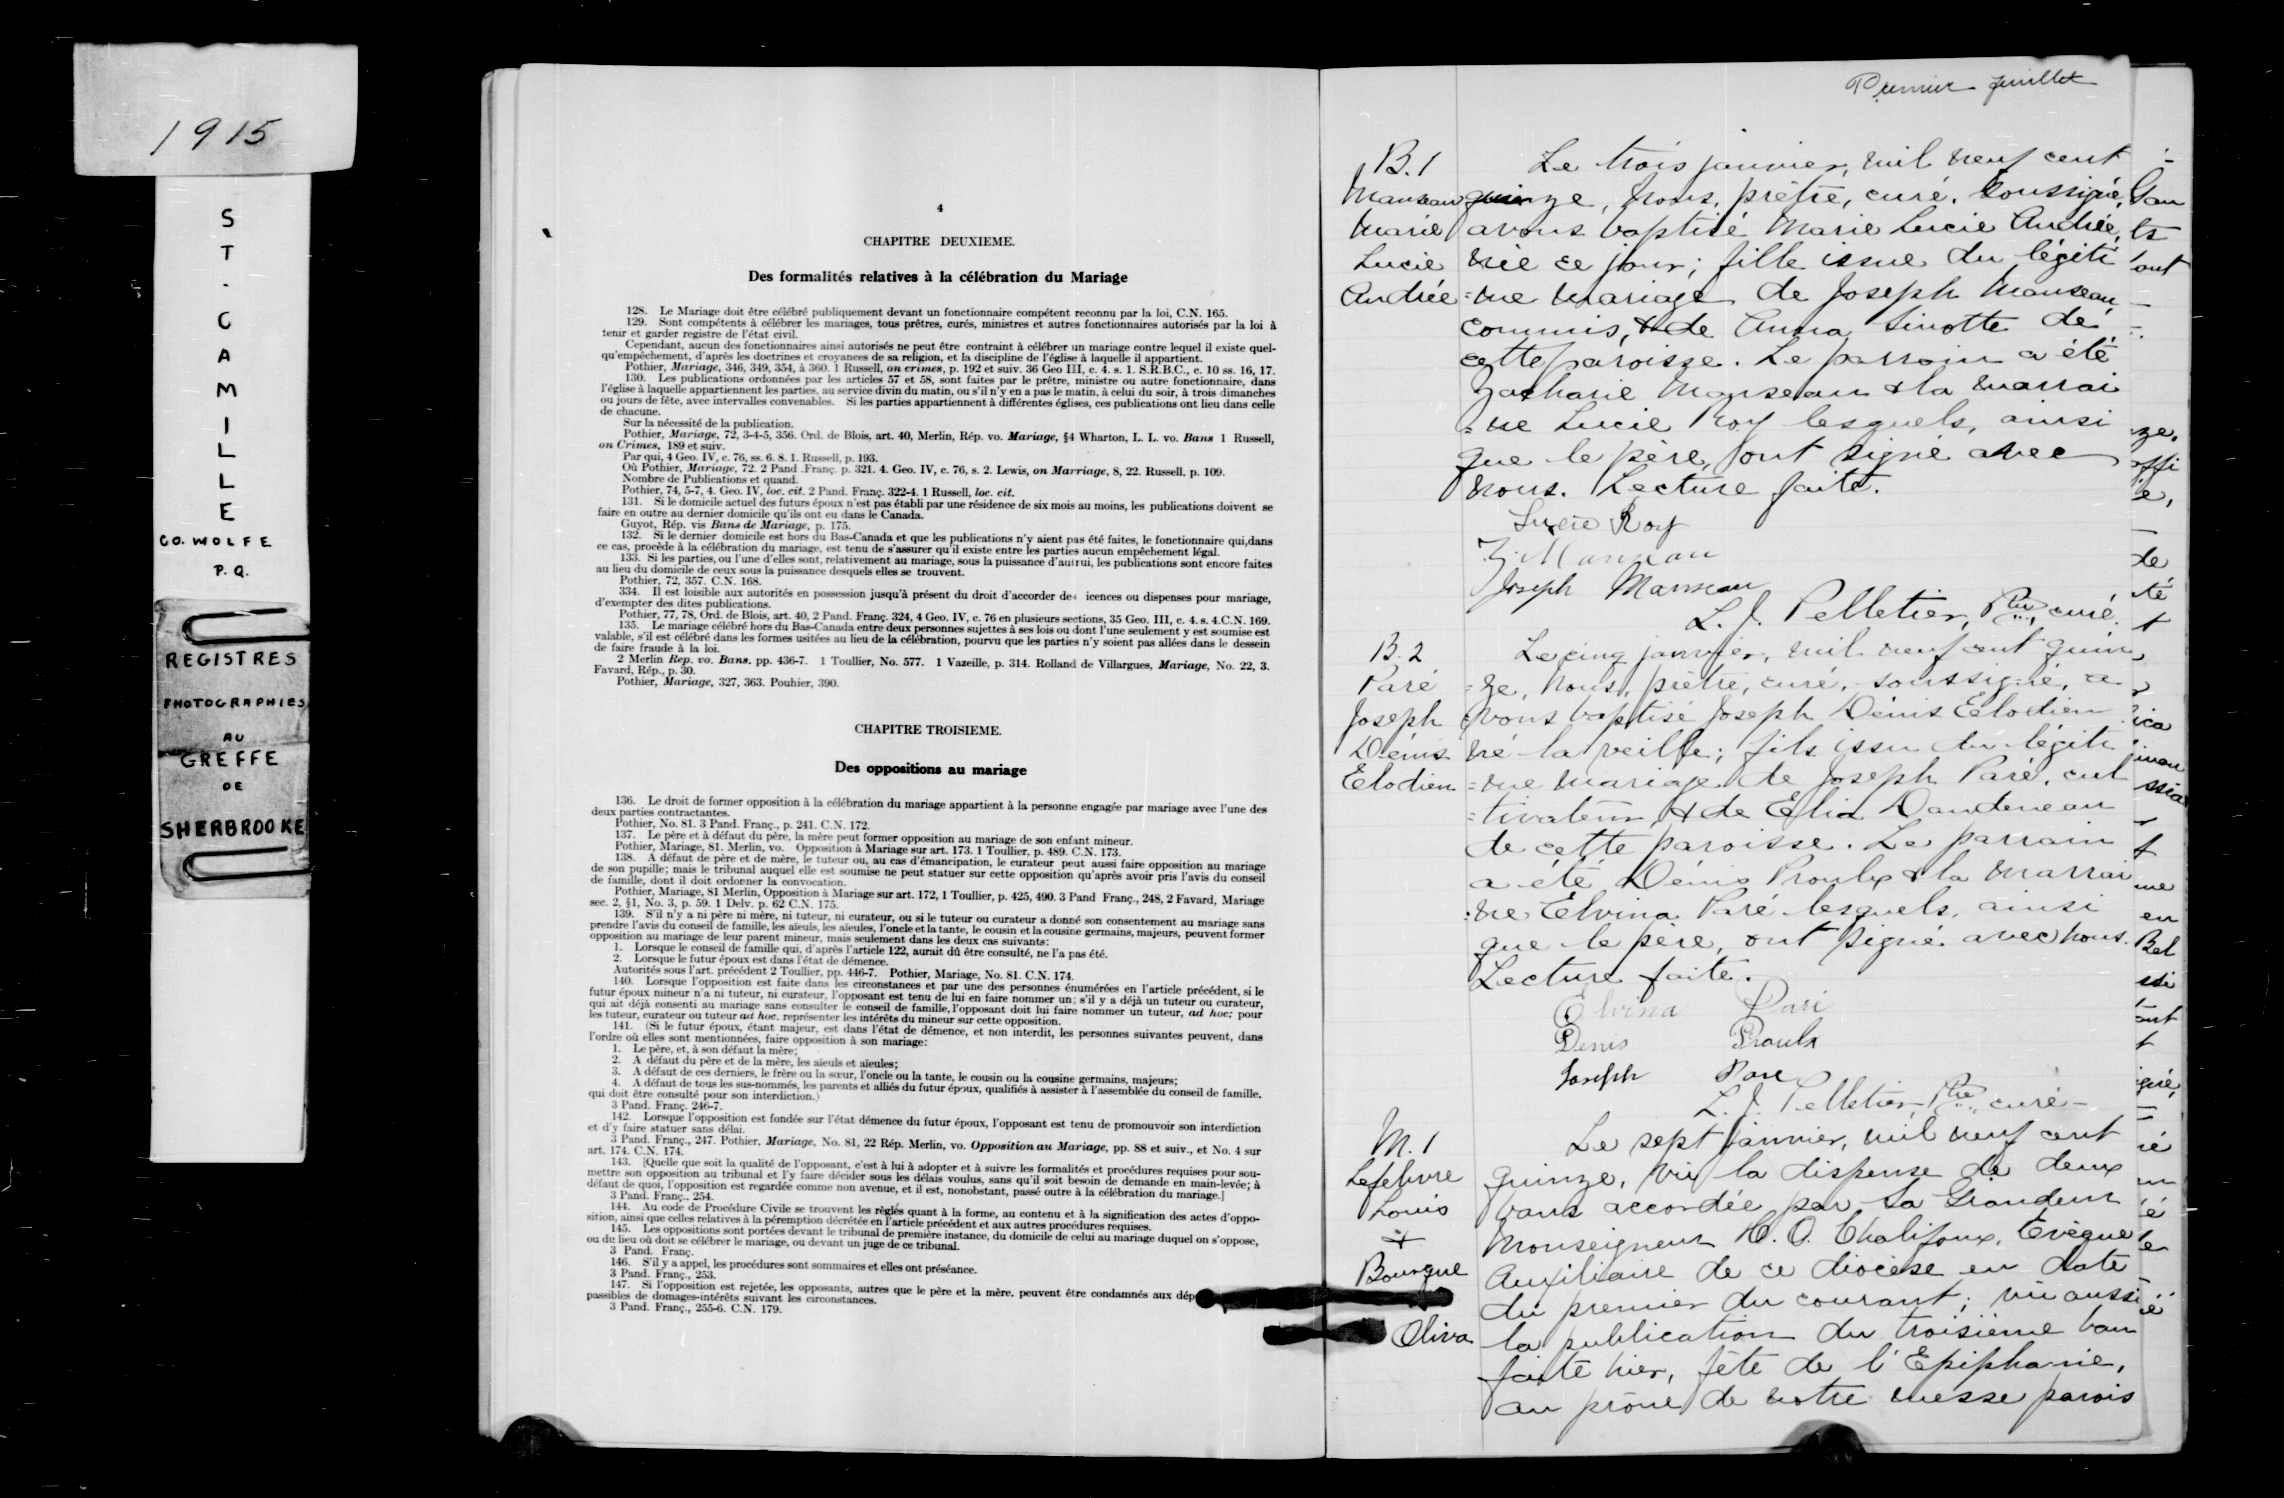 1915
ST. CAMILLE
CO. WOLFE
P. Q.
REGISTRES
PHOTOGRAPHIES
AU
GREFFE
DE
SHERBROOKE
4
CHAPITRE DEUXIEME.
Des formalités relatives à la célébration du Mariage
128. Le Mariage doit être célébré publiquement devant un fonctionnaire compétent reconnu par la loi, C.N. 165.
129. Sont compétents à célébrer les mariages, tous prêtres, curés, ministres et autres fonctionnaires autorisés par la loi à
tenir et garder registre de l'état civil.
Cependant, aucun des fonctionnaires ainsi autorisés ne peut être contraint à célébrer un mariage contre lequel il existe quel-
qu'empêchement, d'après les doctrines et croyances de sa religion, et la discipline de l'église à laquelle il appartient.
Pothier, Mariage, 346, 349, 354, à 360. 1 Russell, on crimes, p. 192 et suiv. 36 Geo III, c. 4. s. 1. S.R.B.C., c. 10 ss. 16, 17.
130. Les publications ordonnées par les articles 57 et 58, sont faites par le prêtre, ministre ou autre fonctionnaire, dans
l'église à laquelle appartiennent les parties, au service divin du matin, ou s'il n'y en a pas le matin, à celui du soir, à trois dimanches
ou jours de fête, avec intervalles convenables. Si les parties appartiennent à différentes églises, ces publications ont lieu dans celle
de chacune.
Sur la nécessité de la publication.
Pothier, Mariage, 72, 3-4-5, 356. Ord. de Blois, art. 40, Merlin, Rép. vo. Mariage, §4 Wharton, L. L. vo. Bans 1 Russell,
on Crimes, 189 et suiv.
Par qui, 4 Geo. IV, c. 76, ss. 6. 8. 1. Russell, p. 193.
Où Pothier, Mariage, 72. 2 Pand .Franç. p. 321. 4. Geo. IV, c. 76, s. 2. Lewis, on Marriage, 8, 22. Russell, p. 109.
Nombre de Publications et quand.
Pothier, 74, 5-7, 4. Geo. IV, loc. cit. 2 Pand. Franç. 322-4. 1 Russell, loc. cit.
131. Si le domicile actuel des futurs époux n'est pas établi par une résidence de six mois au moins, les publications doivent se
faire en outre au dernier domicile qu'ils ont eu dans le Canada.
Guyot, Rép. vis Bans de Mariage, p. 175.
132. Si le dernier domicile est hors du Bas-Canada et que les publications n'y aient pas été faites, le fonctionnaire qui,dans
ce cas, procède à la célébration du mariage, est tenu de s'assurer qu'il existe entre les parties aucun empêchement légal.
133. Si les parties, ou l'une d'elles sont, relativement au mariage, sous la puissance d'autrui, les publications sont encore faites
au lieu du domicile de ceux sous la puissance desquels elles se trouvent.
Pothier, 72, 357. C.N. 168.
334. Il est loisible aux autorités en possession jusqu'à présent du droit d'accorder de icences ou dispenses pour mariage,
d'exempter des dites publications.
Pothier, 77, 78, Ord. de Blois, art. 40, 2 Pand. Franç. 324, 4 Geo. IV, c. 76 en plusieurs sections, 35 Geo. III, c. 4. s. 4.C.N. 169.
135. Le mariage célébré hors du Bas-Canada entre deux personnes sujettes à ses lois ou dont l'une seulement y est soumise est
valable, s'il est célébré dans les formes usitées au lieu de la célébration, pourvu que les parties n'y soient pas allées dans le dessein
de faire fraude à la loi.
2 Merlin Rep. vo. Bans. pp. 436-7. 1 Toullier, No. 577. 1 Vazeille, p. 314. Rolland de Villargues, Mariage, No. 22, 3.
Favard, Rép., p. 30.
Pothier, Mariage, 327, 363. Pouhier, 390.
CHAPITRE TROISIEME.
Des oppositions au mariage
136. Le droit de former opposition à la célébration du mariage appartient à la personne engagée par mariage avec l'une des
deux parties contractantes.
Pothier, No. 81. 3 Pand. Franç., p. 241. C.N. 172.
137. Le père et à défaut du père, la mère peut former opposition au mariage de son enfant mineur.
Pothier, Mariage, 81. Merlin, vo. Opposition à Mariage sur art. 173. 1 Toullier, p. 489. C.N. 173.
138. A défaut de père et de mère, le tuteur ou, au cas d'émancipation, le curateur peut aussi faire opposition au mariage
de son pupille; mais le tribunal auquel elle est soumise ne peut statuer sur cette opposition qu'après avoir pris l'avis du conseil
de famille, dont il doit ordonner la convocation.
Pothier, Mariage, 81 Merlin, Opposition à Mariage sur art. 172, 1 Toullier, p. 425, 490. 3 Pand Franç., 248, 2 Favard, Mariage
sec. 2, §1, No. 3, p. 59. 1 Delv. p. 62 C.N. 175.
139. S'il n'y a ni père ni mère, ni tuteur, ni curateur, ou si le tuteur ou curateur a donné son consentement au mariage sans
prendre l'avis du conseil de famille, les aïeuls, les aïeules, l'oncle et la tante, le cousin et la cousine germains, majeurs, peuvent former
opposition au mariage de leur parent mineur, mais seulement dans les deux cas suivants:
1. Lorsque le conseil de famille qui, d'après l'article 122, aurait dû être consulté, ne l'a pas été.
2. Lorsque le futur époux est dans l'état de démence.
Autorités sous l'art. précédent 2 Toullier, pp. 446-7. Pothier, Mariage, No. 81. C.N. 174.
140. Lorsque l'opposition est faite dans les circonstances et par une des personnes énumérées en l'article précédent, si le
futur époux mineur n'a ni tuteur, ni curateur, l'opposant est tenu de lui en faire nommer un; s'il y a déjà un tuteur ou curateur,
qui ait déjà consenti au mariage sans consulter le conseil de famille, l'opposant doit lui faire nommer un tuteur, ad hoc; pour
les tuteur, curateur ou tuteur ad hoc. représenter les intérêts du mineur sur cette opposition.
141. (Si le futur époux, étant majeur, est dans l'état de démence, et non interdit, les personnes suivantes peuvent, dans
l'ordre où elles sont mentionnées, faire opposition à son mariage:
1. Le père, et, à son défaut la mère;
2. A défaut du père et de la mère, les aïeuls et aïeules;
3. A défaut de ces derniers, le frère ou la sœur, l'oncle ou la tante, le cousin ou la cousine germains, majeurs;
4. A défaut de tous les sus-nommés, les parents et alliés du futur époux, qualifiés à assister à l'assemblée du conseil de famille,
qui doit être consulté pour son interdiction.)
3 Pand. Franç. 246-7.
142. Lorsque l'opposition est fondée sur l'état démence du futur époux, l'opposant est tenu de promouvoir son interdiction
et d'y faire statuer sans délai.
3 Pand. Franç., 247. Pothier, Mariage, No. 81, 22 Rép. Merlin, vo. Opposition au Mariage, pp. 88 et suiv., et No. 4 sur
art. 174. C.N. 174.
143. [Quelle que soit la qualité de l'opposant, c'est à lui à adopter et à suivre les formalités et procédures requises pour sou-
mettre son opposition au tribunal et l'y faire décider sous les délais voulus, sans qu'il soit besoin de demande en main-levée; à
défaut de quoi, l'opposition est regardée comme non avenue, et il est, nonobstant, passé outre à la célébration du mariage.]
3 Pand. Franç., 254.
144. Au code de Procédure Civile se trouvent les règles quant à la forme, au contenu et à la signification des actes d'oppo-
sition, ainsi que celles relatives à la péremption décrétée en l'article précédent et aux autres procédures requises.
145. Les oppositions sont portées devant le tribunal de première instance, du domicile de celui au mariage duquel on s'oppose,
ou du lieu où doit se célébrer le mariage, ou devant un juge de ce tribunal.
3 Pand. Franç.
146. S'il y a appel, les procédures sont sommaires et elles ont préséance.
3 Pand. Franç., 253.
147. Si l'opposition est rejetée, les opposants, autres que le père et la mère. peuvent être condamnés aux dép
passibles de domages-intérêts suivant les circonstances.
3 Pand. Franç., 255-6. C.N. 179.
Premier feuillet
B.1
Manseau
Marie
Lucie
Andrée
Le trois janvier, mil neuf cent
quinze, nous, prêtre, curé, soussigné,
avons baptisé Marie Lucie Andrée,
née ce jour; fille issue du légiti
=me mariage de Joseph Manseau,
commis, & de Anna Sinotte de
cette paroisse. Le parrain a été
Zacharie Manseau & la marrai
=ne Lucie Roy lesquels, ainsi
que le père, ont signé avec
nous. Lecture faite.
Lucie Roy
Z. Manseau
Joseph Manseau
L. J. Pelletier, Ptre, curé.
B.2
Paré
Joseph
Dénis
Elodien
Le cinq janvier, mil neuf cent quin
=ze, nous, prêtre, curé, soussigné, a
vons baptisé Joseph Dénis Elodien
né la veille; fils issu du légiti
=me mariage de Joseph Paré, cul
=tivateur & de Elia Dandeneau
de cette paroisse. Le parrain
a été Dénis Proulx & la marrai
=ne Elvina Paré lesquels, ainsi
que le père, ont signé avec nous.
Lecture faite.
Elvina Paré
Denis Proulx
Joseph Pare
L. J. Pelletier, Ptre, curé
M.1
Lefebvre
Louis
&
Bourque
Oliva
Le sept janvier, mil neuf cent
quinze, vu la dispense de deux
bans accordée par Sa Grandeur
Monseigneur H. O. Chalifoux, Evêque
Auxiliaire de ce diocèse en date
du premier du courant; vu aussi
la publication du troisième ban
faite hier, fête de l'Epiphanie,
au prône de notre messe parois